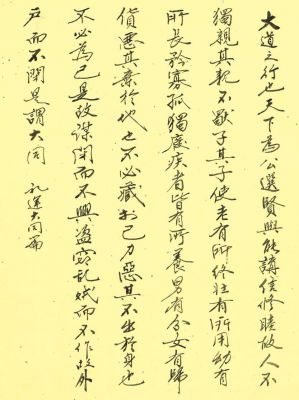 大道之行也天下為公選賢與能講信修睦故人不
獨親其親不獨子其子使老有所終壯有所用幼有
所長矜寡孤獨廢疾者皆有所養男有分女有歸
貨惡其棄於地也不必藏於己力惡其不出於身也
不必為己是故謀閉而不興盜竊乱賊而不作故外
戶而不閉是謂大同 礼運大同篇